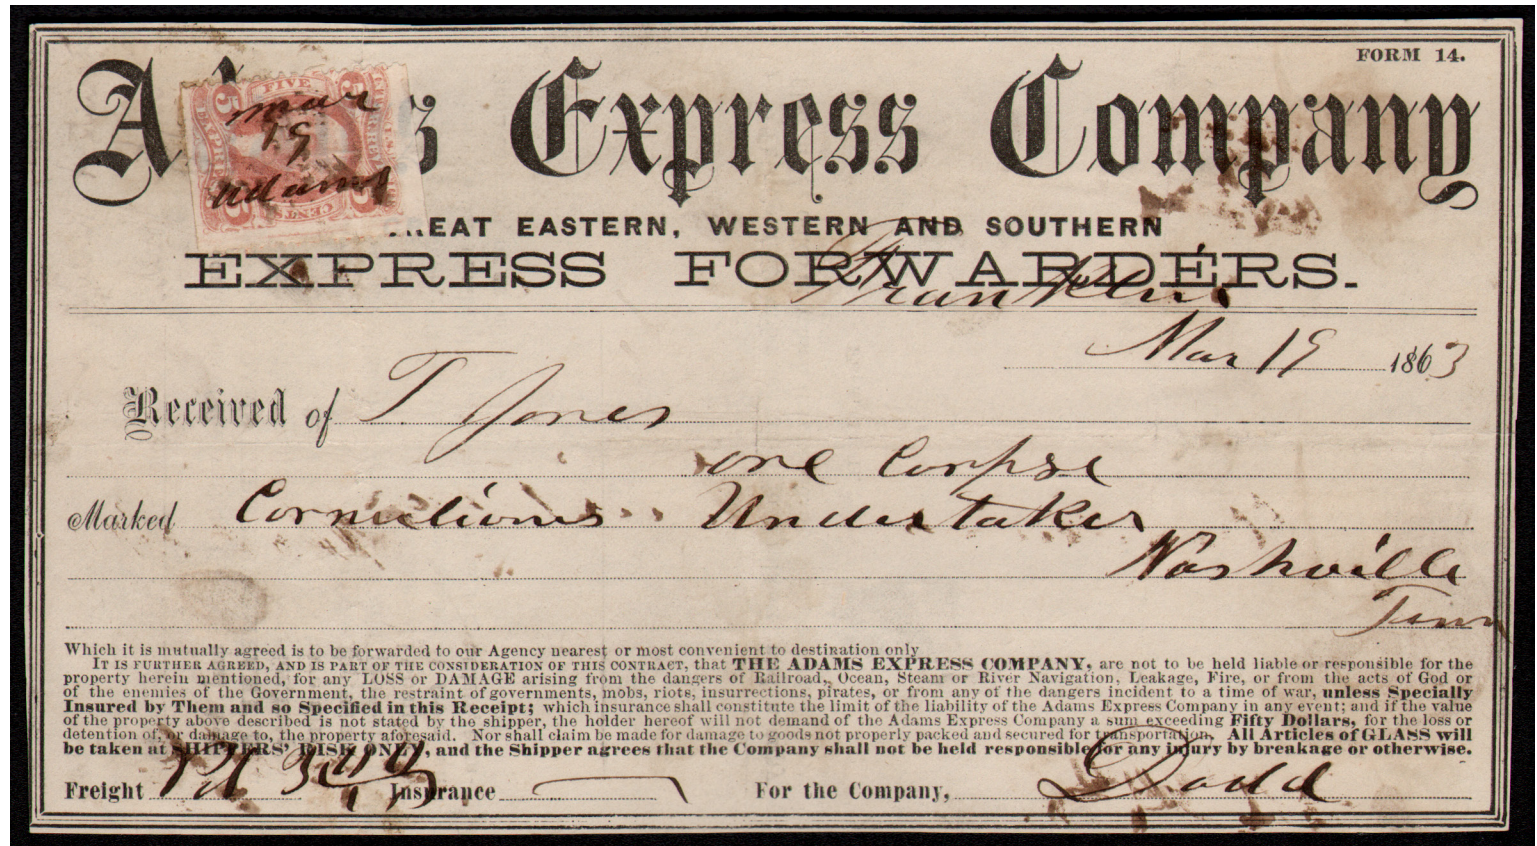 FORM 14.
A's Express Company
FIVE
5 5
EXPRESS
mar
19
Adams
CENTS
REAT EASTERN, WESTERN AND SOUTHERN
EXPRESS FORWARDERS.
Franklin
Mar 19 1863
Received of T Jones
one Corpse
Marked Cornelious Undertaker
Nashville
Tenn
Which it is mutually agreed is to be forwarded to our Agency nearest or most convenient to destination only
IT IS FURTHER AGREED, AND IS PART OF THE CONSIDERATION OF THIS CONTRACT, that THE ADAMS EXPRESS COMPANY, are not to be held liable or responsible for the
property herein mentioned, for any LOSS or DAMAGE arising from the dangers of Railroad, Ocean, Steam or River Navigation, Leakage, Fire, or from the acts of God or
of the enemies of the Government, the restraint of governments, mobs, riots, insurrections, pirates, or from any of the dangers incident to a time of war, unless Specially
Insured by Them and so Specified in this Receipt; which insurance shall constitute the limit of the liability of the Adams Express Company in any event; and if the value
of the property above described is not stated by the shipper, the holder hereof will not demand of the Adams Express Company a sum exceeding Fifty Dollars, for the loss or
detention of, or damage to, the property aforesaid. Nor shall claim be made for damage to goods not properly packed and secured for transportation. All Articles of GLASS will
be taken at SHIPPERS' RISK ONLY, and the Shipper agrees that the Company shall not be held responsible for any injury by breakage or otherwise.
Freight Pd Insurance For the Company, Dodd